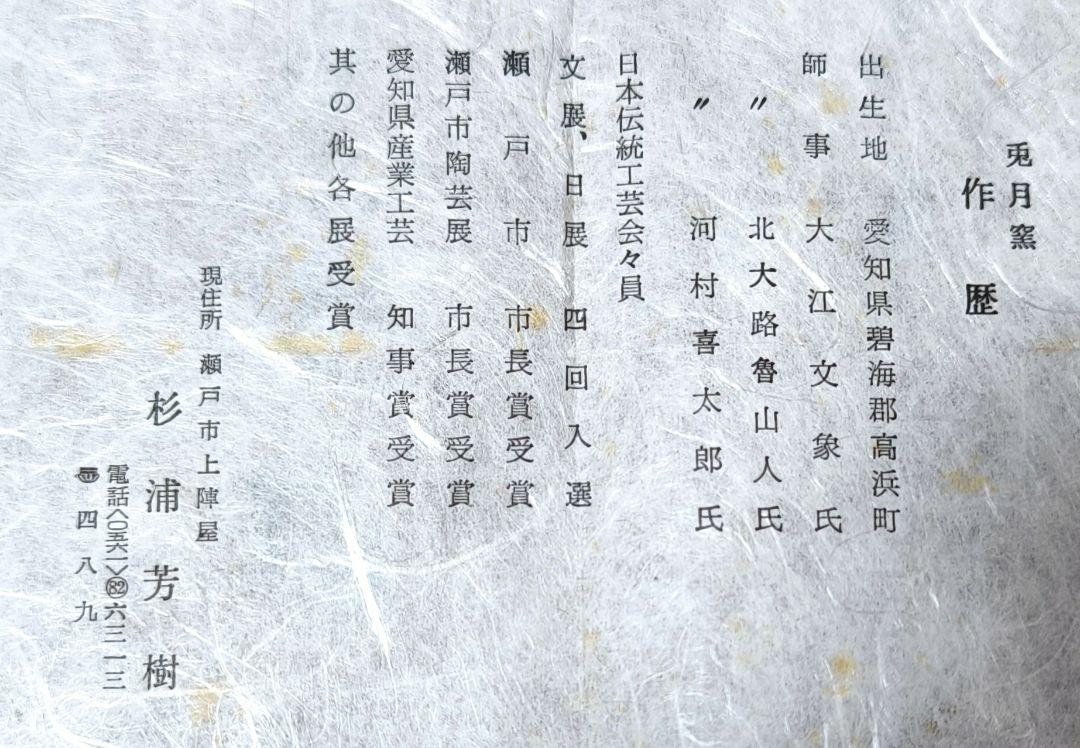 兎月窯
作歴
出生地 愛知県碧海郡高浜町
師事 大江文象氏
〃 北大路魯山人氏
〃 河村喜太郎氏
日本伝統工芸会々員
文展、日展四回入選
瀬戸市 市長賞受賞
瀬戸市陶芸展 市長賞受賞
愛知県産業工芸 知事賞受賞
其の他各展受賞
現住所 瀬戸市上陣屋
杉浦芳樹
電話〈〇五六一〉82六三一三
〠四八九